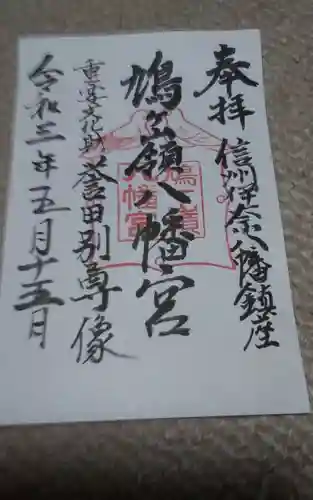 奉拝
信州伊奈八幡鎮座
鳩ヶ嶺八幡宮
鳩ヶ嶺
八幡宮
重要文化財誉田別尊像
令和三年五月十五日